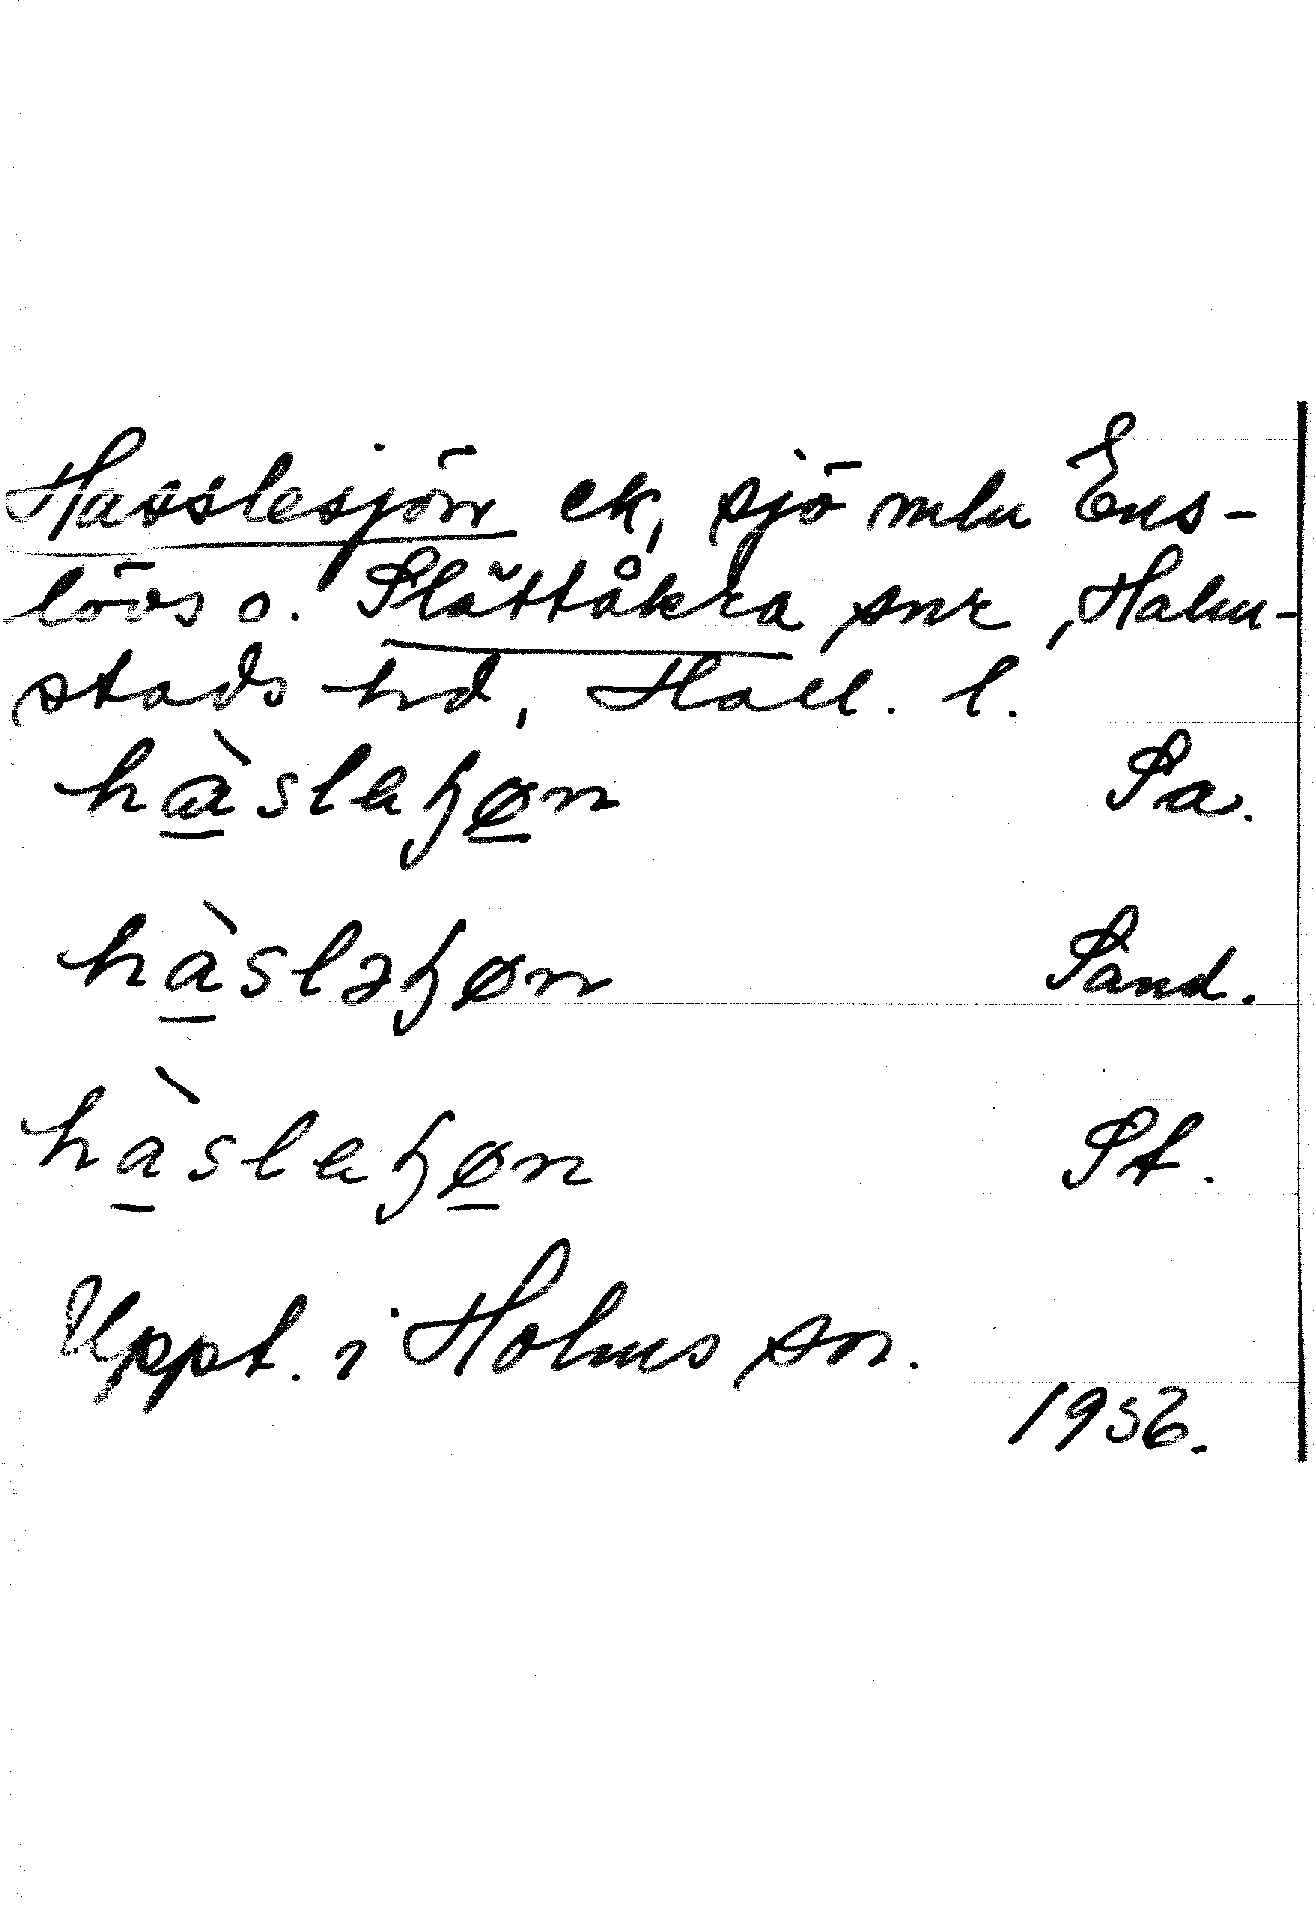 Hasslesjön ek, sjö mln Ens-
lövs o. Slättåkra snr, Halm-
stads hd, Hall. l.
hàslaɧøn Sa.
hàsləɧøn Sand.
hàslaɧøn St.
Uppt. i Holms sn.
1956.